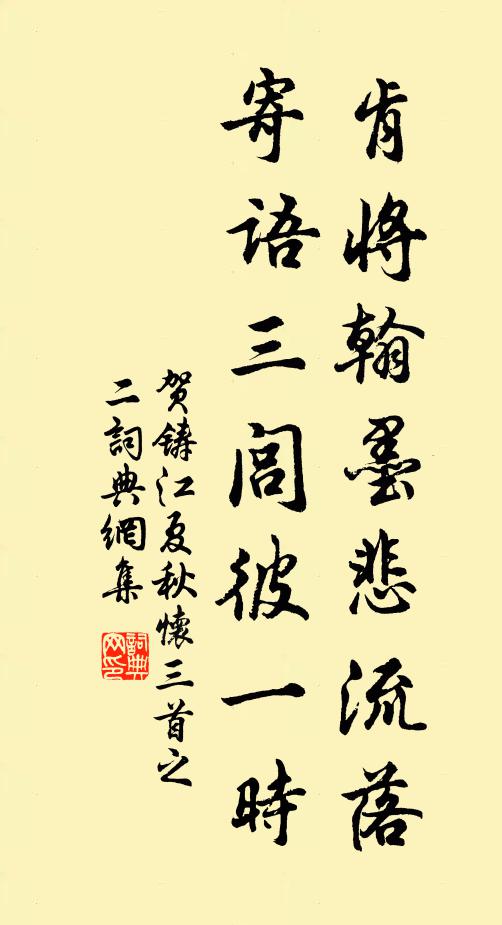 肯將翰墨悲流落
寄語三閭彼一時
贺鑄江夏秋懷三首之
二詞典網集
詞典網印